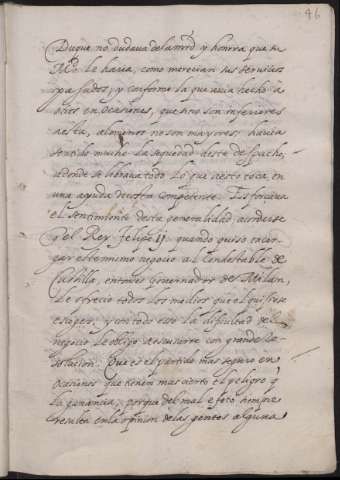 46
Duque no dudava de la mrd y honrra que su
Md. le havia, como merecian sus servicios
passados, y conforme la que avia hecho à
otros en Ocasiones, que sino son inferiores
nesta, al menos no son mayores: havia
sentido mucho la sequedad deste despacho,
adonde se librava todo lo que a esto toca, en
una ayuda de costa competente. Esforcava
el sentimiento desta generalidad, acordarse
q el Rey Felipe ij. quando quiso encar-
gar este mismo negocio al Condestable de
Castilla, entonces Governador de Milan,
le ofrecio todos los medios que el quisiese
escoger, y con todo esso la dificultad del
negocio le obligo à escusarse con grande Re-
solucion. Que es el partido mas seguro en
Ocasiones que tienen mas cierto el peligro q
la ganancia, porque del mal efeto siempre
resulta en la opinion de las gentes alguna